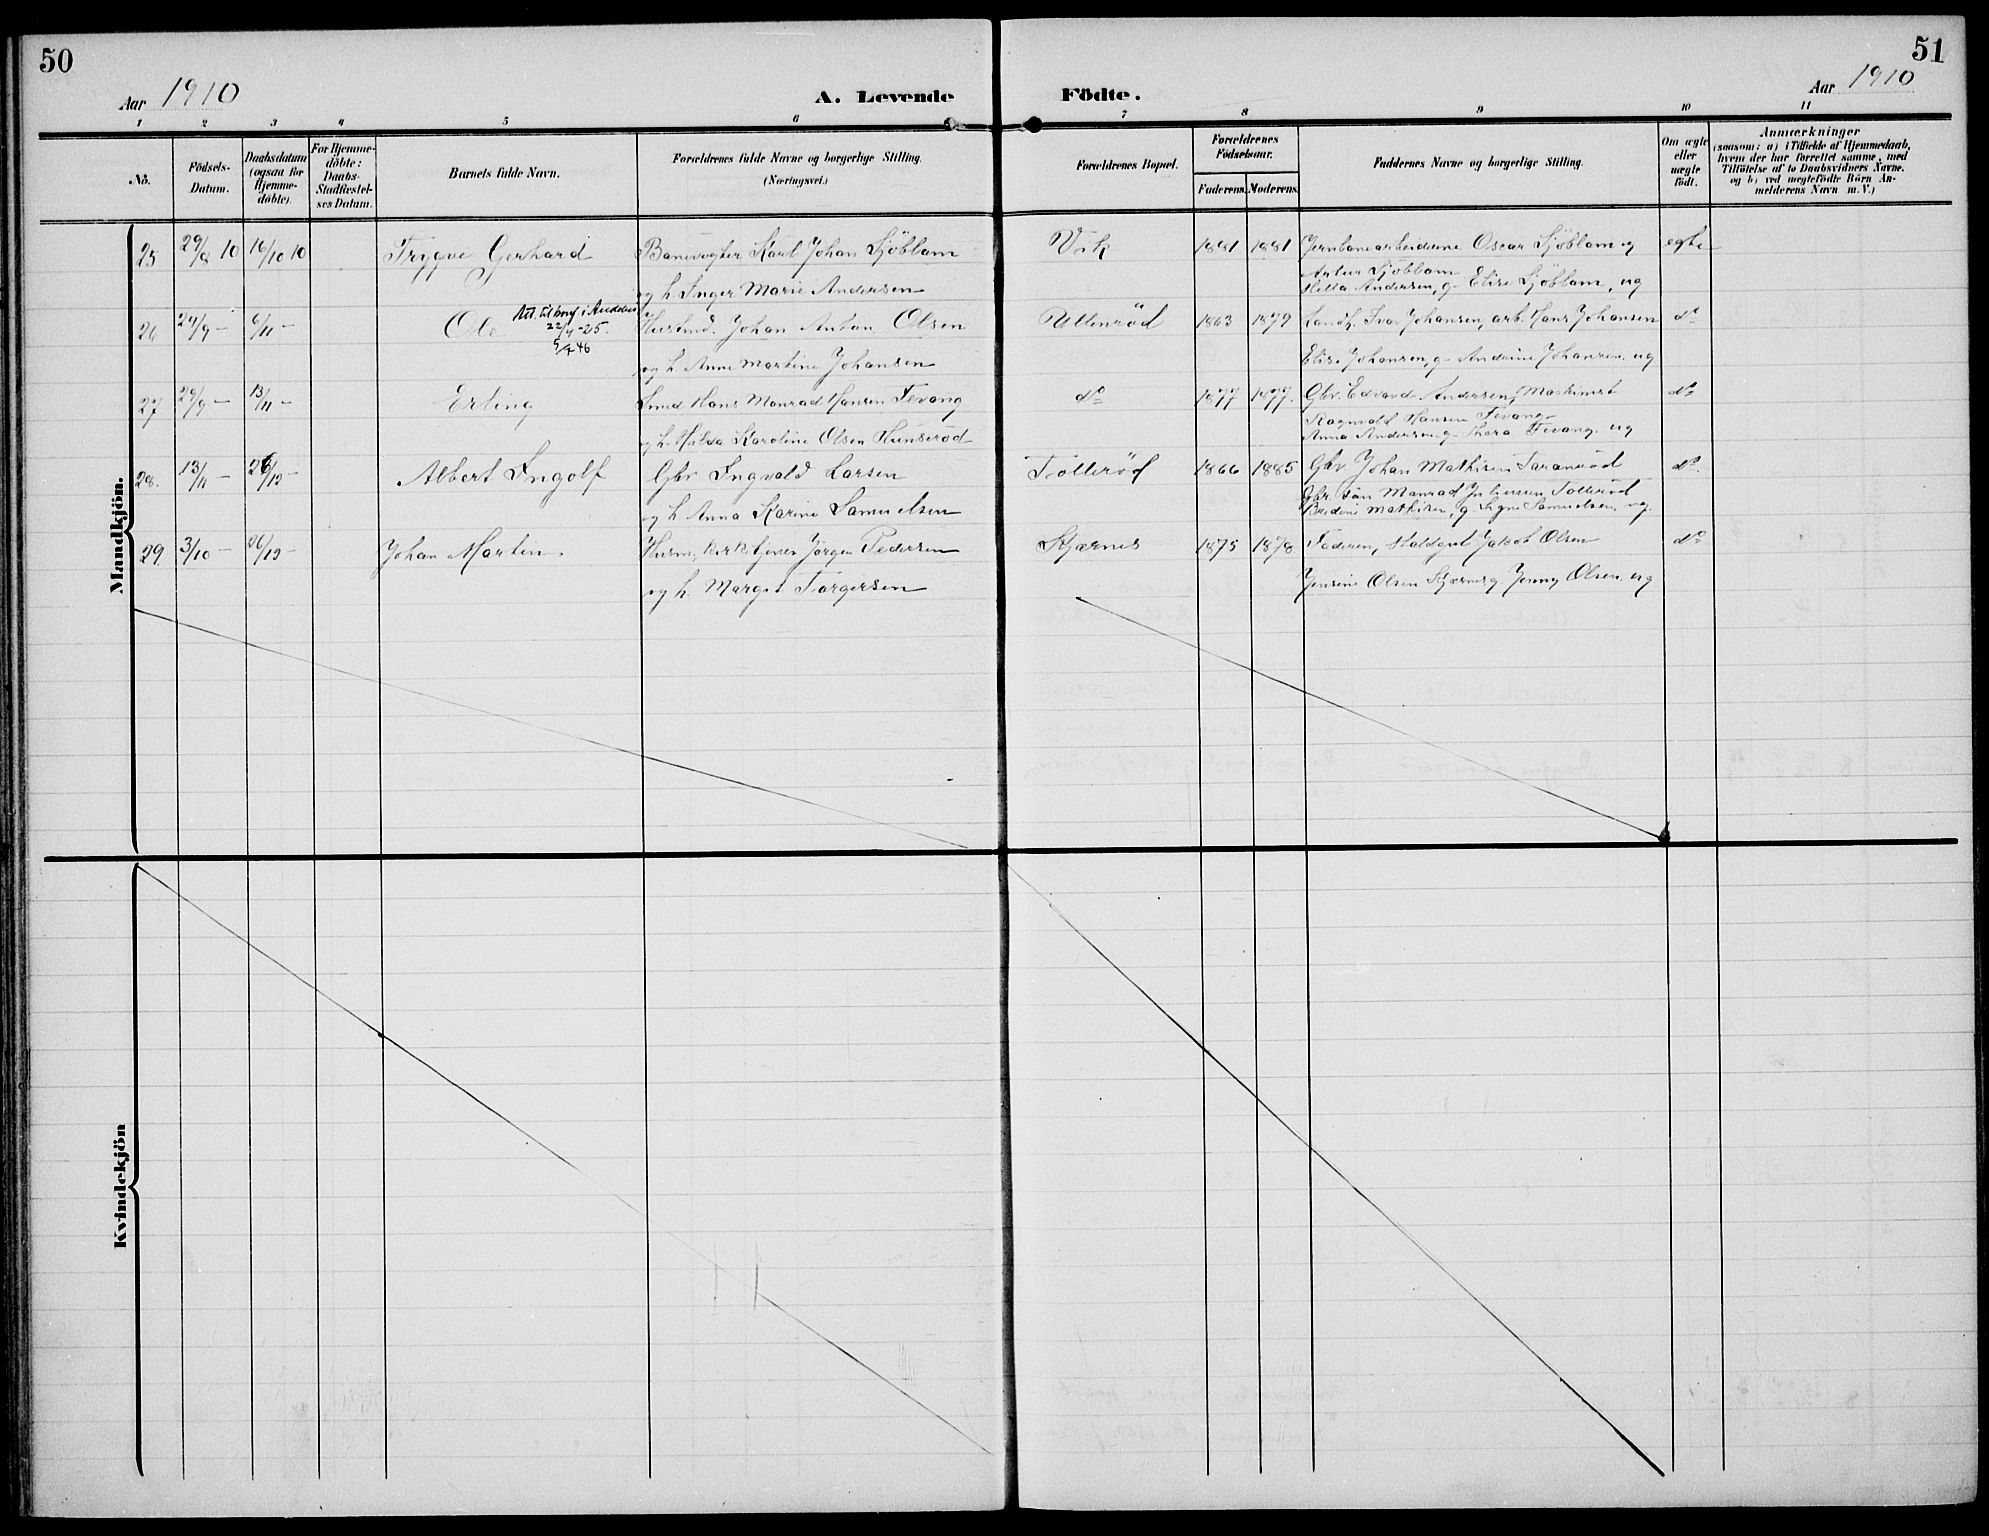 50
51
Aar 1910
A. Levende
Födte.
Aar 1910
1 2 3 4 5 6 7 8 9 10 11
No.
Födsels-
Datum.
Daabsdatum
(ogsaa for
Hjemme-
döbte).
For Hjemme-
döbte:
Daabs-
Stadfæstel-
ses Datum.
Barnets fulde Navn.
Forældrenes fulde Navne og borgerlige Stilling.
(Næringsvei.)
Forældrenes Bopæl.
Forældrenes
Födselsaar.
Faderens. Moderens.
Faddernes Navne og borgerlige Stilling.
Om ægte
eller
uægte
födt.
Anmærkninger
(saasom: a) i Tilfælde af Hjemmedaab,
hvem der har forrettet samme, med
Tilföielse af to Daabsvidners Navne,
og b) ved uægtefödte Börn An-
melderens Navn m. V.)
Mandkjön.
25 29/8 10 16/10 10 Trygve Gerhard Banevogter Karl Johan Sjöblom Vik 1881 1881 Jernbanearbeiderne Oscar Sjöblom og egte
og h. Inger Marie Andersen
Artur Sjöblom
Andersen, g. Elise Sjöblom, ug
26 24/9 – 6/11 – Ole Att. til
22/4-25.
5/7 46
Husmd. Johan Anton Olsen Ullenröd 1863 1879 Ivar Johansen, arb. Hans Johansen do
og h. Anne Martine Johansen
Elise Johansen, g. Andrine Johansen, ug
27 29/9 – 13/11 – Erling Smed Hans Monrad Hansen Fevang do 1877 1877. Gbr. Edvard Andersen, Maskinist do
og h. Hilda Karoline Olsen Hunseröd
Ragnvald Hansen Fevang
Anna Andersen, g. Thora Fevang, ug
28. 13/11 – 26/12 – Albert Ingolf Gbr Ingvald Larsen Tolleröd 1866 1885 Gbr. Johan Mathisen do.
og h. Anna Karine Samuelsen
Gbr. Sön Manrad Tolleröd
Mathisen, g. Signe Samuelsen, ug.
29 3/10 – 26/12 – Johan Martin. Husm, kirketjener Jörgen Pedersen Skjærnes 1875 1878 Faderen, Jakob Olsen do
og h. Margit Torgersen
Jensine Olsen Skjærnes, g. Jenny Olsen, ug
Kvindekjön